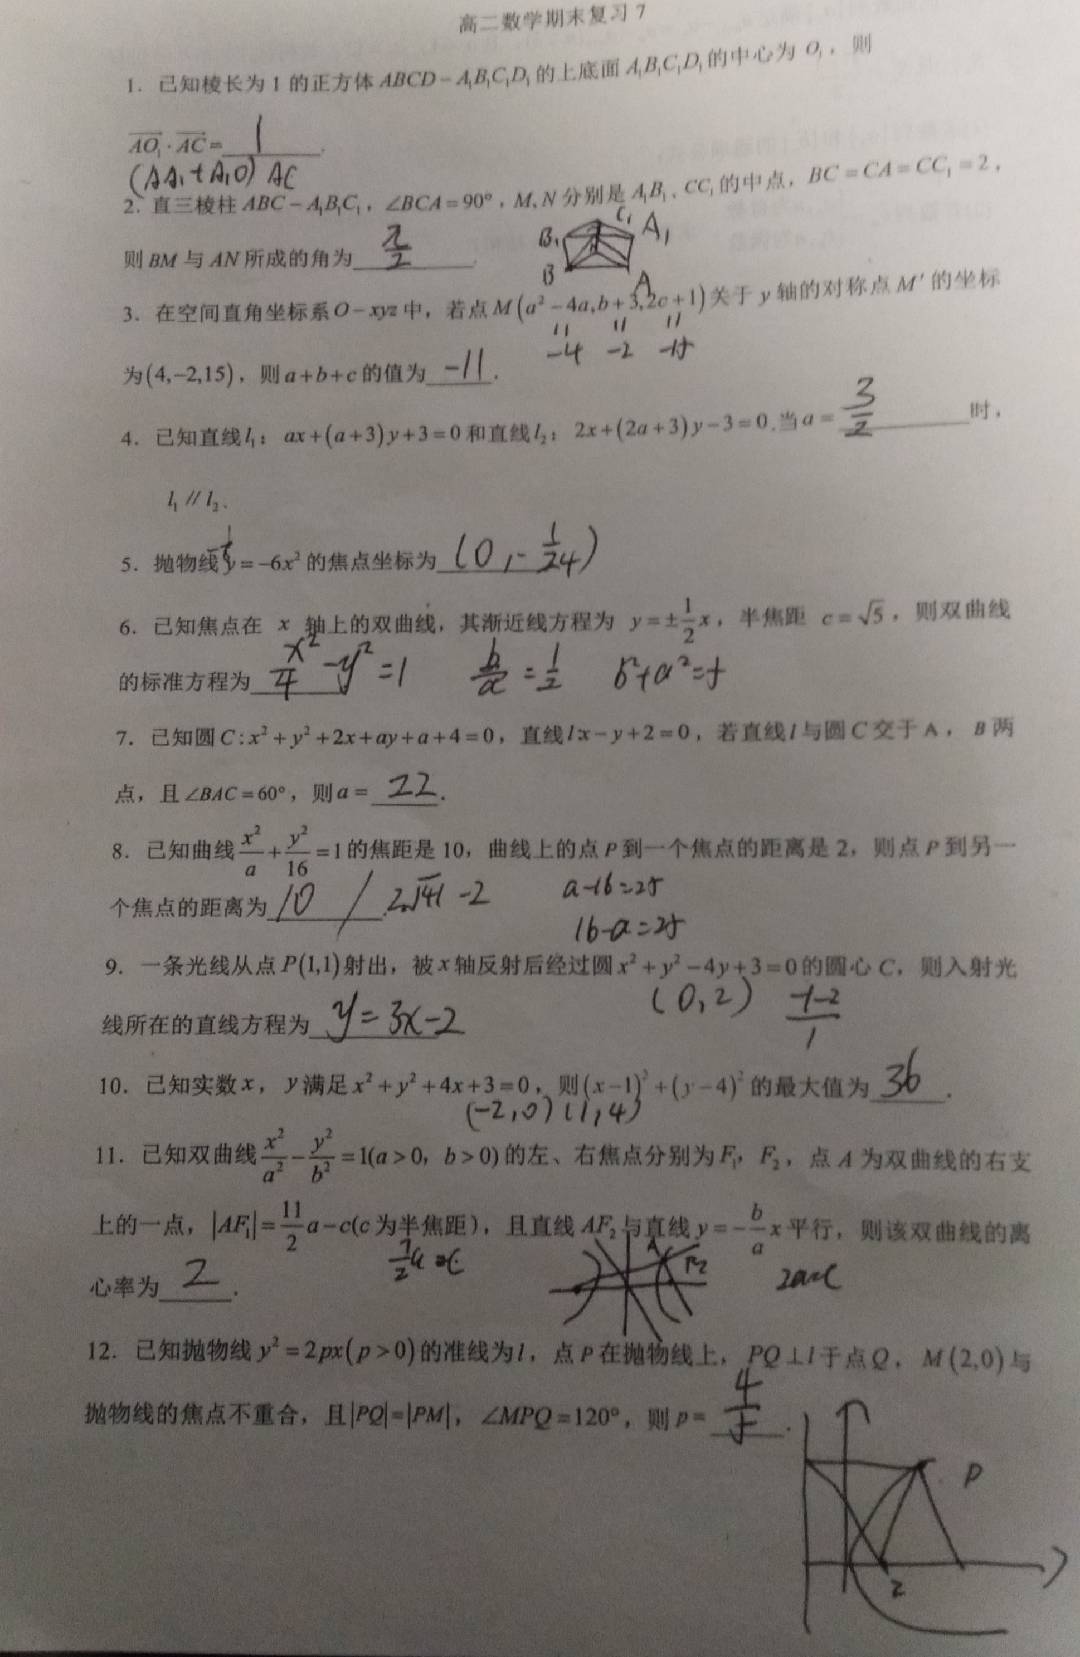 高二数学期末复习 7
1. 已知棱长为 1 的正方体 ABCD-A₁B₁C₁D₁ 的上底面 A₁B₁C₁D₁ 的中心为 O₁，则
AO₁·AC= 1 .
(AA₁+A₁O) AC
2. 直三棱柱 ABC-A₁B₁C₁，∠BCA=90°，M,N 分别是 A₁B₁、CC₁ 的中点，BC=CA=CC₁=2，
B₁ C₁ A₁
则 BM 与 AN 所成的角为 π/2 .
B A
3. 在空间直角坐标系 O-xyz 中，若点 M(a²-4a,b+3,2c+1) 关于 y 轴的对称点 M′ 的坐标
-4 -2 -15
为 (4,-2,15)，则 a+b+c 的值为 -11 .
4. 已知直线 l₁：ax+(a+3)y+3=0 和直线 l₂：2x+(2a+3)y-3=0.当 a= 3/2 时，
l₁ // l₂.
5. 抛物线 y=-6x² 的焦点坐标为 (0,-1/24)
6. 已知焦点在 x 轴上的双曲线，其渐近线方程为 y=±1/2x，半焦距 c=√5，则双曲线
的标准方程为 x²/4-y²=1 b/a=1/2 b²+a²=5
7. 已知圆 C:x²+y²+2x+ay+a+4=0，直线 l:x-y+2=0，若直线 l 与圆 C 交于 A，B 两
点，且∠BAC=60°，则 a= 22 .
8. 已知曲线 x²/a+y²/16=1 的焦距是 10，曲线上的点 P 到一个焦点的距离是 2，则点 P 到另一
个焦点的距离为 10 / 2√41-2 a-16=25
16-a=25
9. 一条光线从点 P(1,1) 射出，被 x 轴反射后经过圆 x²+y²-4y+3=0 的圆心 C，则入射光
(0,2) -1-2/1
线所在的直线方程为 y=3x-2
10. 已知实数 x，y 满足 x²+y²+4x+3=0，则 (x-1)²+(y-4)² 的最大值为 36 .
(-2,0) (1,4)
11. 已知双曲线 x²/a²-y²/b²=1(a>0，b>0) 的左、右焦点分别为 F₁，F₂，点 A 为双曲线的右支
上的一点，|AF₁|=11/2a-c(c 为半焦距)，且直线 AF₂ 与直线 y=-b/a x 平行，则该双曲线的离
心率为 2 .
12. 已知抛物线 y²=2px(p>0) 的准线为 l，点 P 在抛物线上，PQ⊥l 于点 Q，M(2,0) 与
抛物线的焦点不重合，且|PQ|=|PM|，∠MPQ=120°，则 p= 4/5 .
P
2